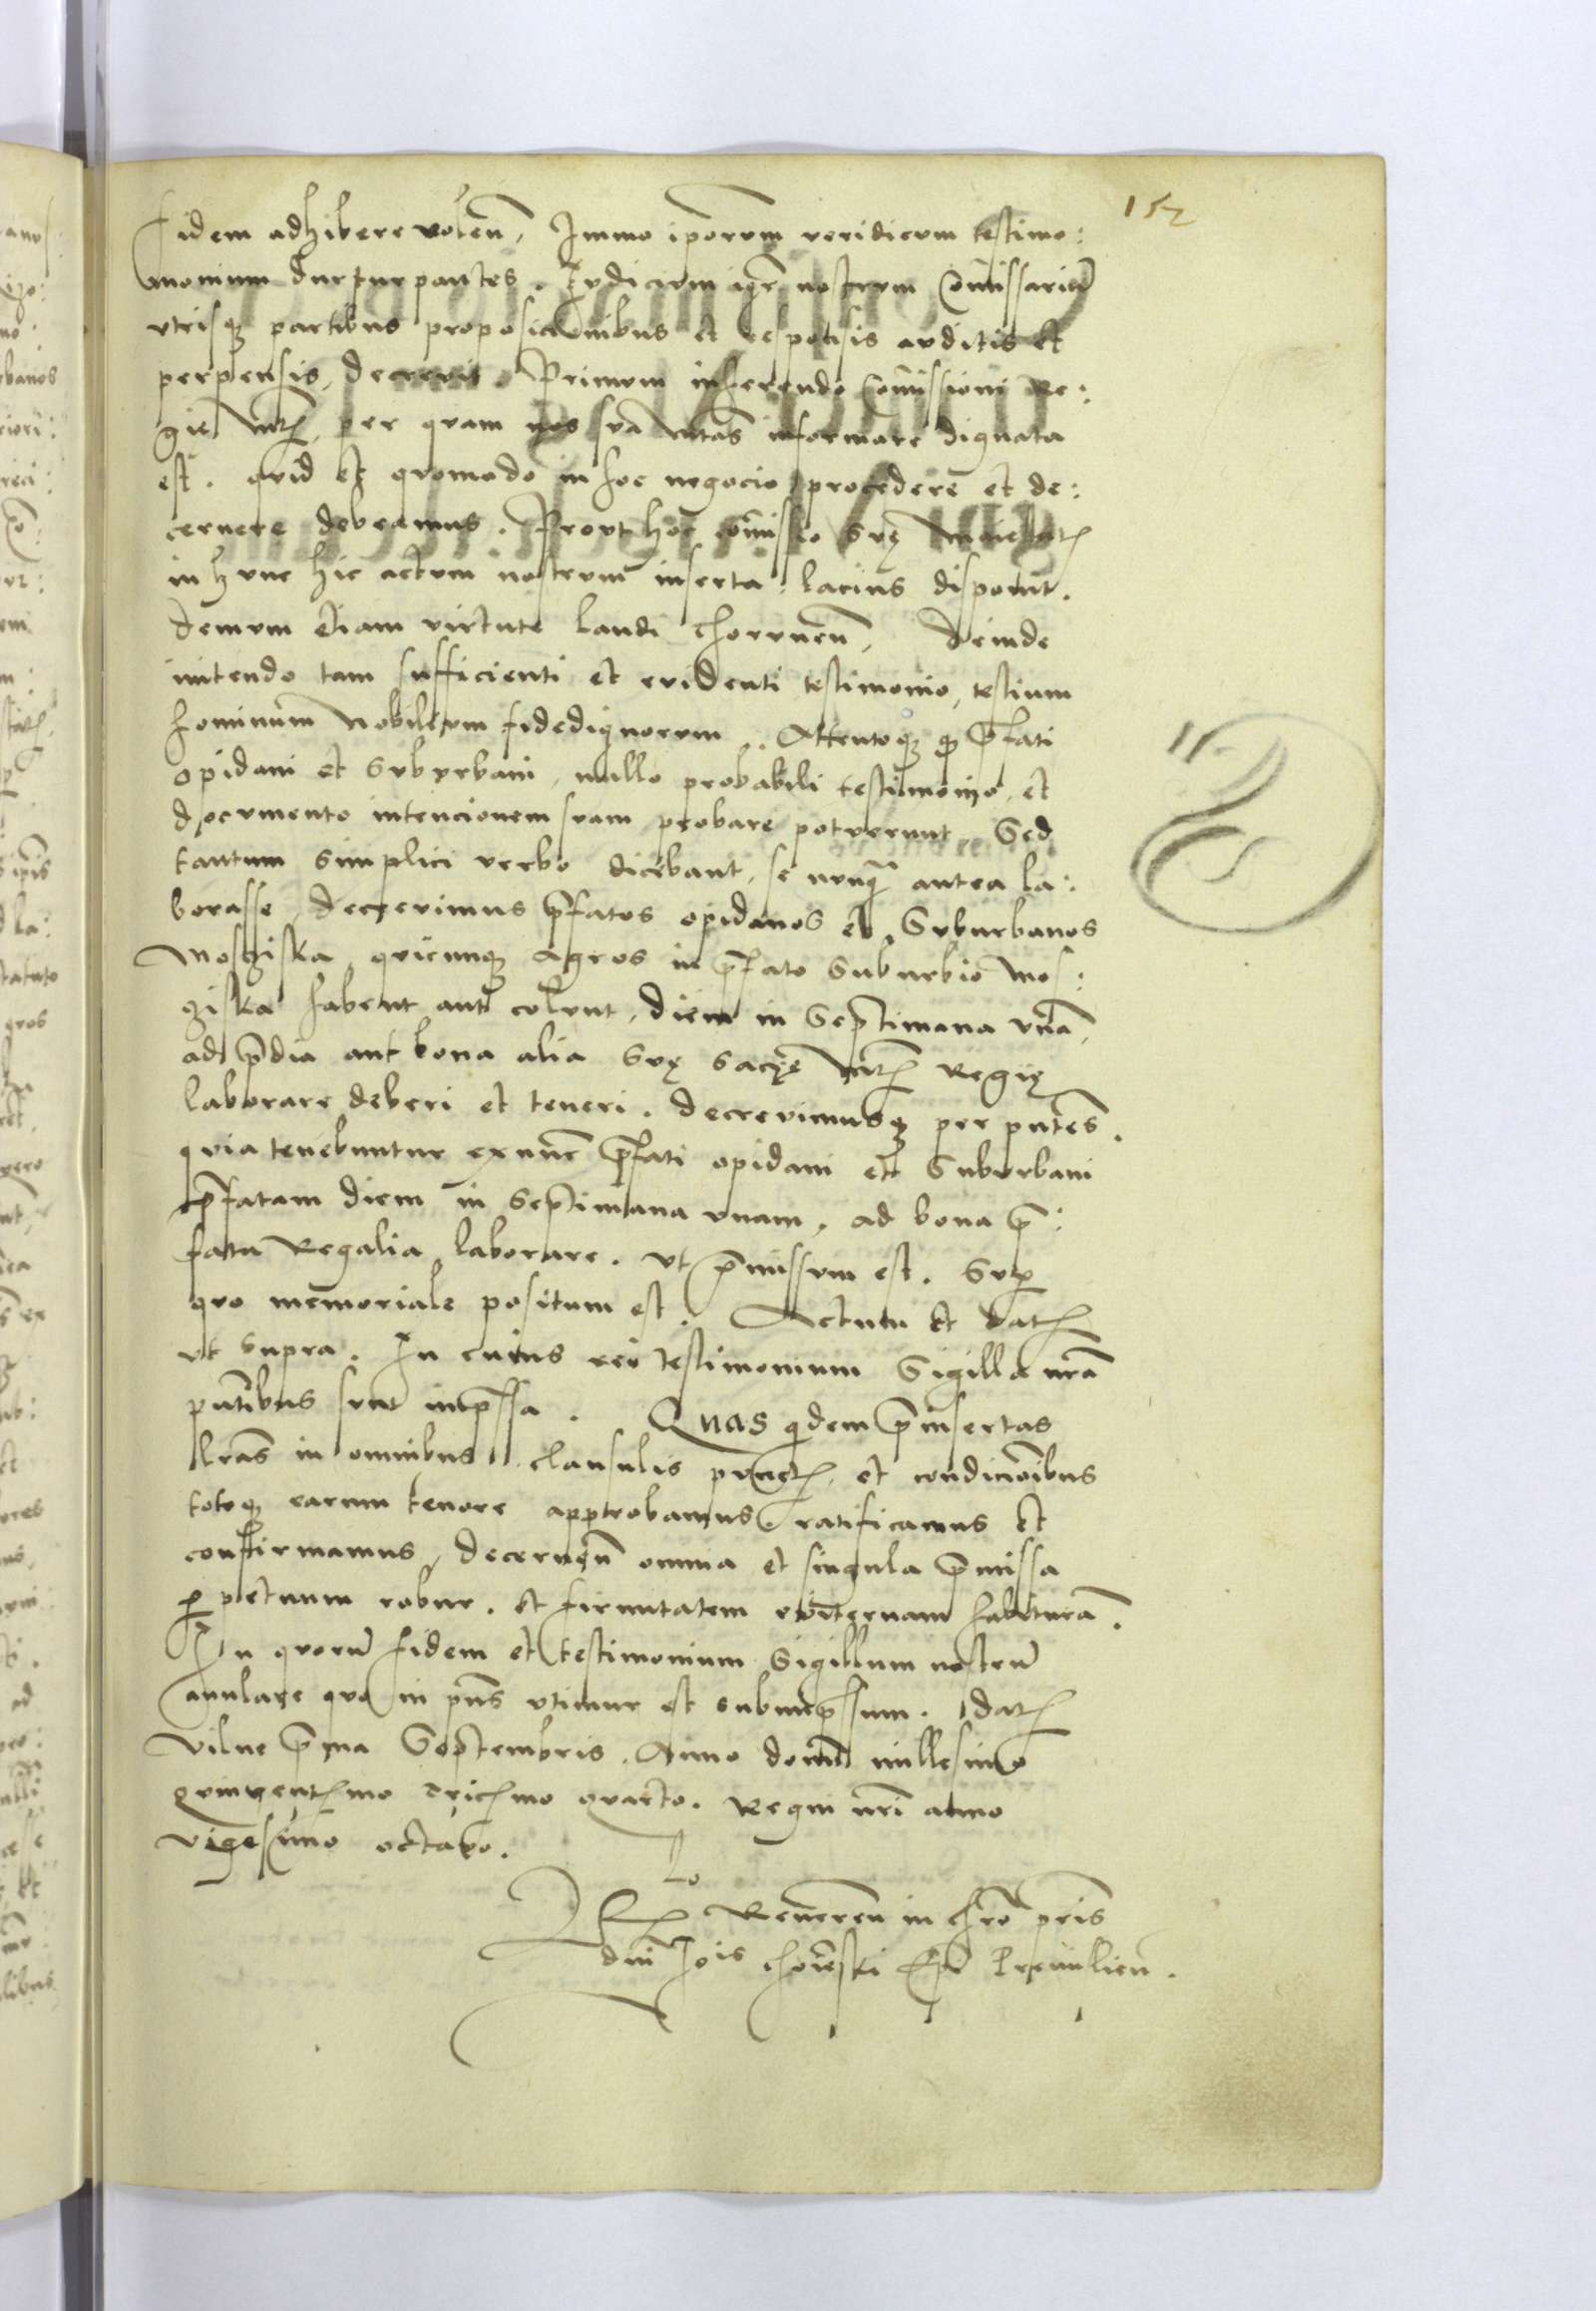 152
fidem adhibere volen̄, Immo ipsorum veridicum testimo:
monium durturpantes. Iudicium igr̃ nostrum Com̃issariũ
vtrisq; partibus proposicionibus et responsis auditis et
perpensis, decrevit. Primum inherendo Com̃issioni Re:
gię mt̃s, per quam nos sua mtas informare dignata
est. quid et quomodo in hoc negocio procedere et de:
cernere debeamus. Prout hoc com̃issio suę Maiestat̃
in hunc hic actum nostrum inserta: lacius disponit.
demum etiam virtute laudi chorunen̄, Deinde
nitendo tam sufficienti et evidenti testimonio, testium
hominum nobilium fidedignorum. Attentoq; q̃ p̃fati
opidani et Suburbani, nullo probabili testimonio, et
documento intencionem suam probare potuerunt, Sed
tantum simplici verbo dicebant, se nunq̃ antea la:
borasse, decrevimus p̃fatos opidanos et Suburbanos
Mosziska quicunq; Agros in p̃fato Suburbio Mos:
ziska habent aut colunt, diem in Septimana vnã,
ad p̃dia aut bona alia suę sacrę mt̃s Regię
laborare deberi et teneri. decrevimusq; per pñtes.
quia tenebuntur exnunc p̃fati opidani et Suburbani
p̃fatam diem in Septimana vnam, ad bona p̃:
fata Regalia laborare. vt p̃missum est. Sup̃
quo memoriale positum est. Actum et dat̃
vt supra. In cuius rei testimonium Sigilla nr̃a
pñtibus sunt imp̃ssa. Quas q̃dem p̃insertas
lr̃as in omnibus clausulis punct̃ et condicioñibus
totoq; earum tenore approbamus ratificamus et
confirmamus, decernen̄ omnia et singula p̃missa
ꝑpetuum robur. et firmitatem eviternam habiturã.
In quorũ fidem et testimonium Sigillum nostrũ
anulare quo in pñs vtimur est subimp̃ssum. Dat̃
Vilne p̃ma Septembris. Anno domĩ millesimo
quingent̃mo tric̃mo quarto. Regni nr̃i anno
vigesimo octavo.
Rło Reveren̄ in chr̃o pr̃is
dñi Joĩs choieñski Epĩ Premislien̄.